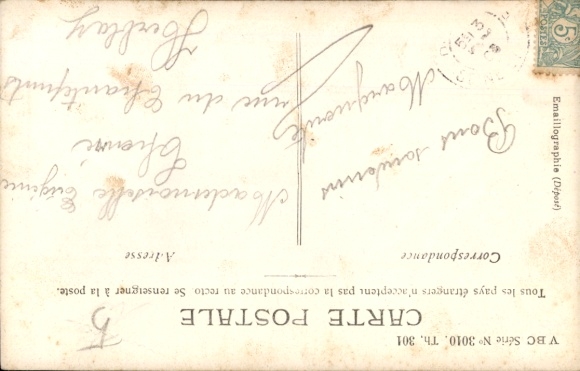 VBC Série Nº 3010. Th. 301
CARTE POSTALE
5
Tous les pays étrangers n'acceptent pas la correspondance au recto. Se renseigner à la poste.
Correspondance
Adresse
Emaillographie (Déposé)
Bons souvenirs
Marguerite
Mademoiselle Eugénie
rue du
Herblay
5
POSTES